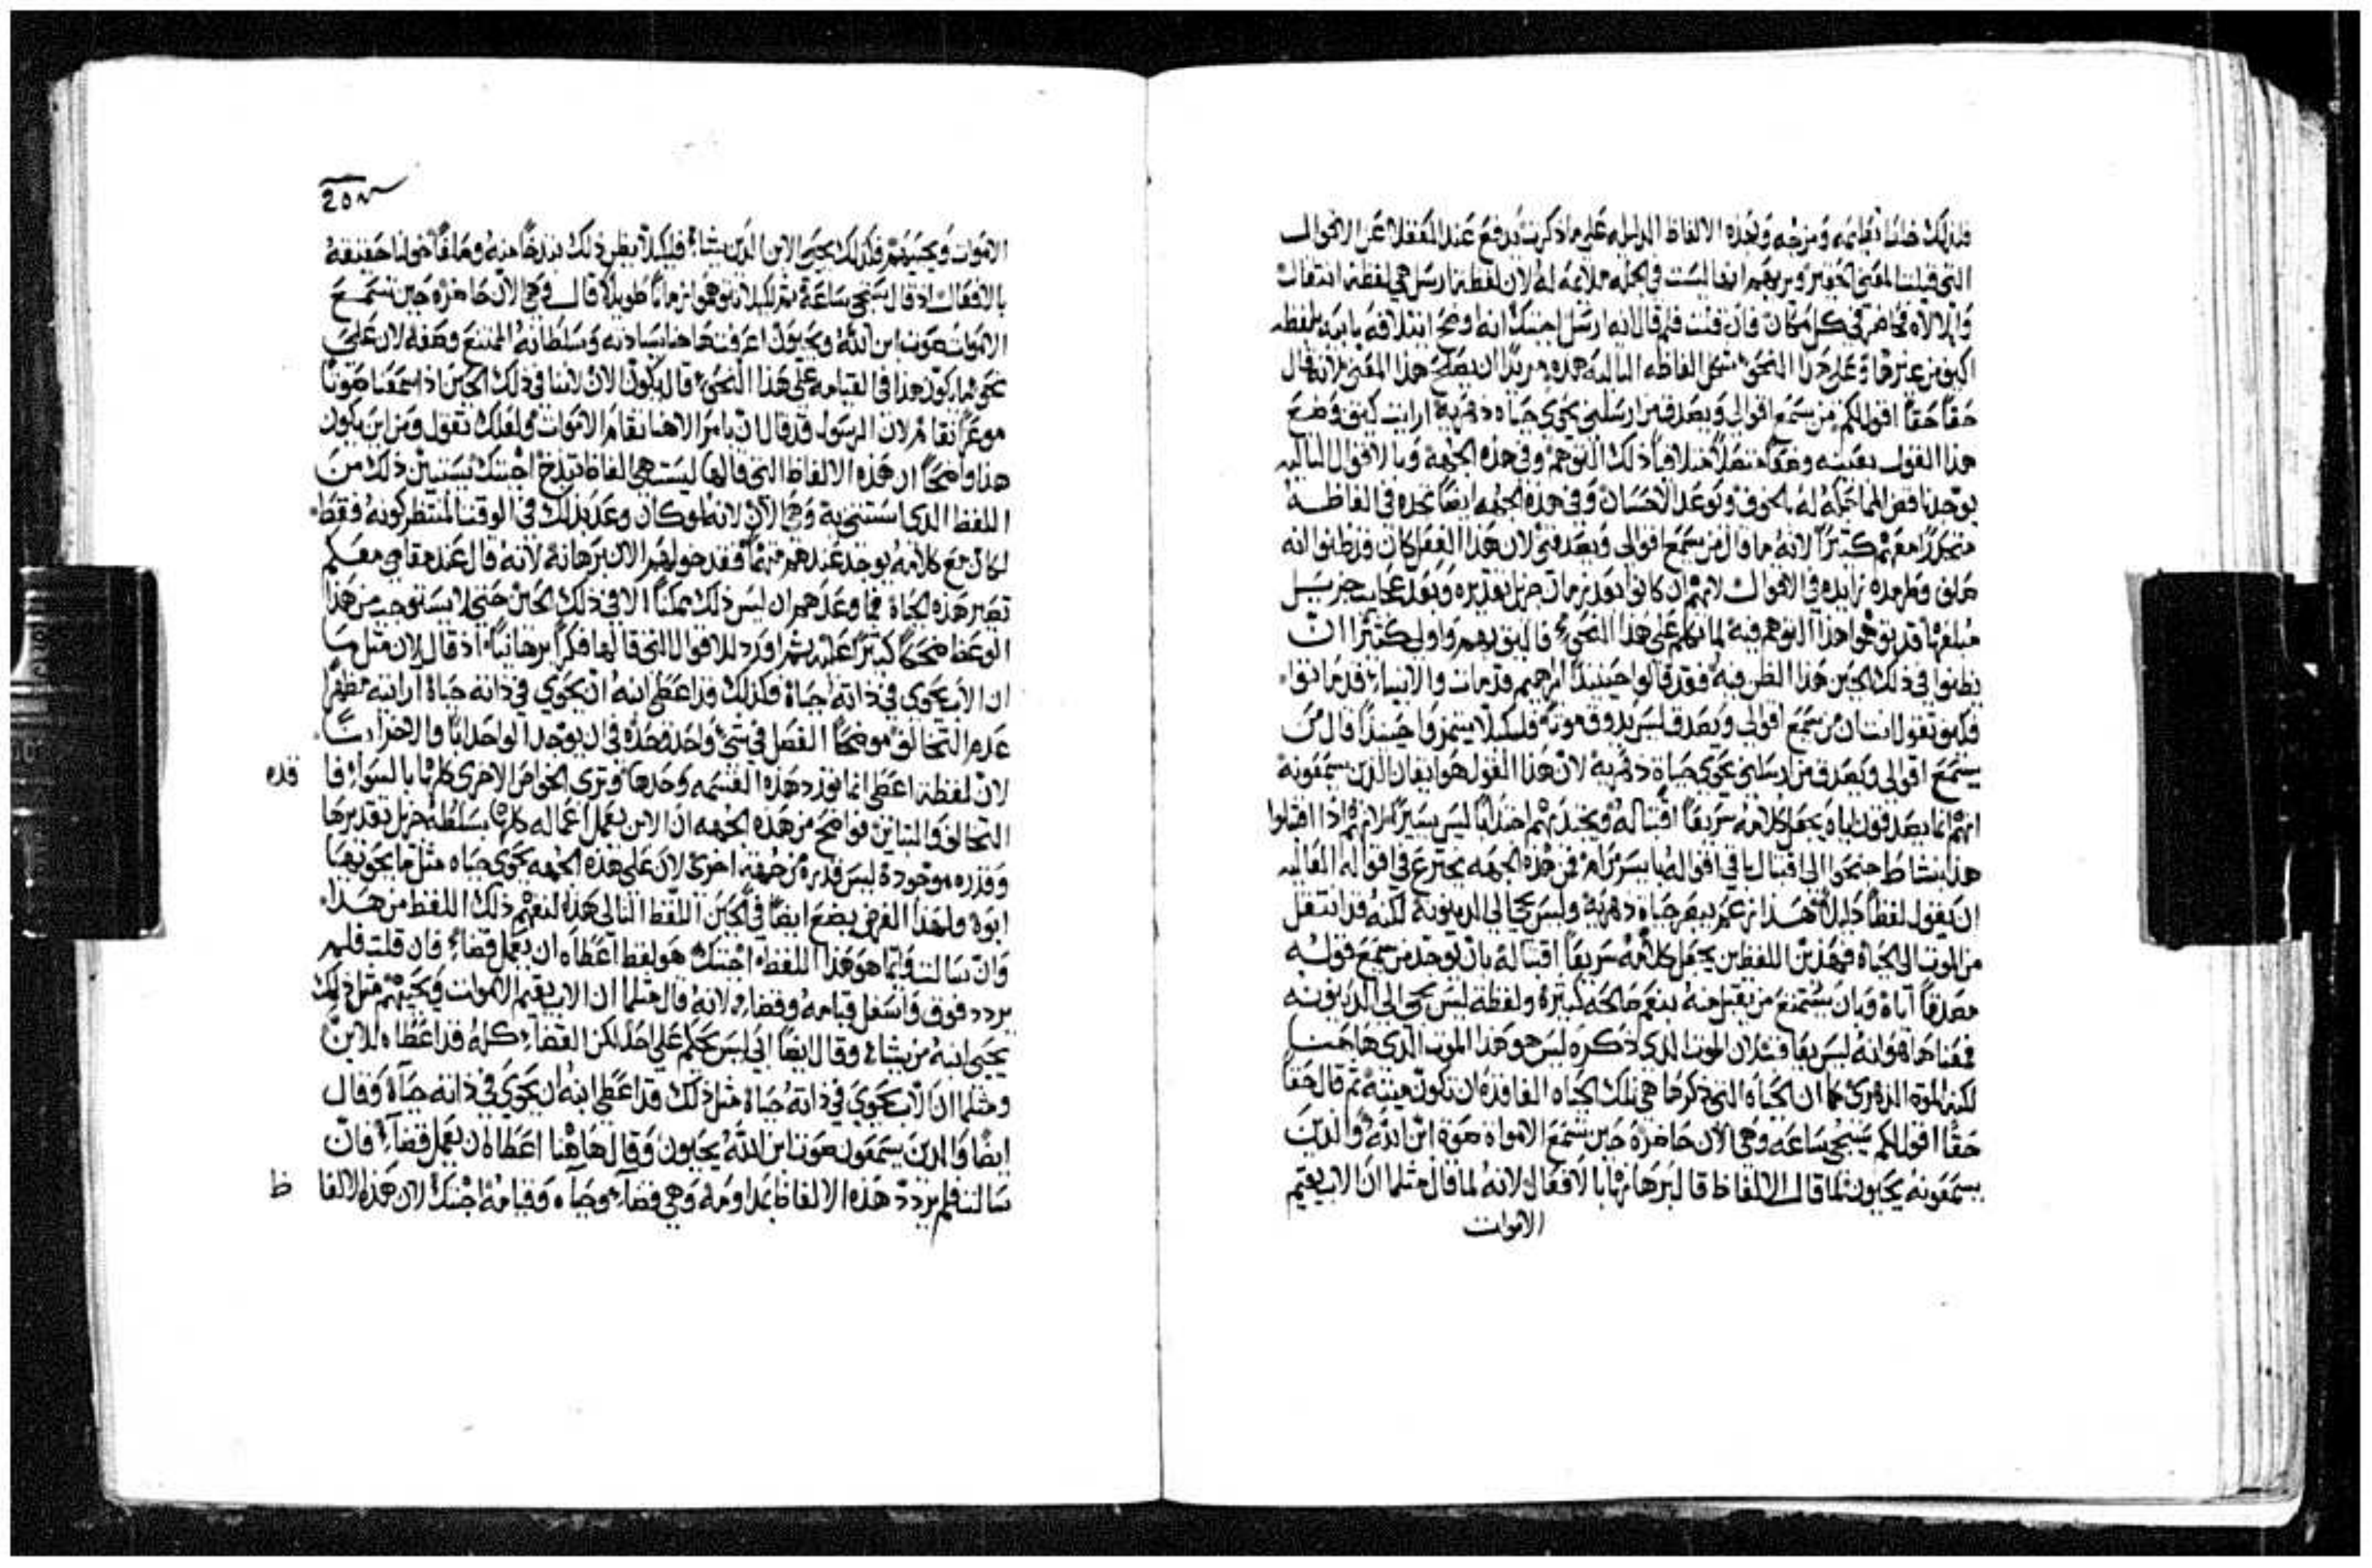 فلذلك خلط تعليمه ومزجه وبهذه الالفاظ الدليل على ما ذكرت يدفع عند المغفلا عن الاقوال
التي قبلت المعنى الحقير ويريهم انها ليست في الجمله ملايمه له لان لفظة ارسل هي لفظة انتقال
والالاه فحاضر في كل مكان فان قلت فلم قال انه ارسل اجبتك انه اوضح ابتلافه بابيه بلفظه
وعلى هذا النحو شكل الفاظه التاليه هذه مريدًا ان يصلح هذا المعنى لانه قال
حقًا حقًا اقول لكم من سمع اقوالي ويصدق من ارسلني يحوي حياه دهرية ارايت كيف وضع
هذا القول بعينه وضعًا متصلًا ذلك التوهم وفي هذه الجهة وبالاقوال التاليه
يوجد ناقض المماحكه له بالخوف وتوعد الاحسان وفي هذه الجهه ايضًا نجده في الفاظه
معهم كثيرًا لانه ما قال من يسمع اقوالي ويصدقني لان هذا الفعل كان قد ظنوا انه
زايده في الاقوال لانهم ان كانوا بعد زمان جزيل تقديره وبعد عجايب جزيل
مبلغها قد توهموا هذا التوهم فيه لما تكلم على هذا النحو فاليق بهم واولى كثيرًا ان
يظنوا في ذلك الحين هذا الظن فيه فقد قالوا حينيذ ابراهيم قد مات والانبياء قد ماتوا
فكيف تقول انت ان من سمع اقوالي ويصدق ليس يذوق موته فلكيلا يتنمروا حينيذ قال من
يسمع اقوالي ويصدق من ارسلني يحوي حياة دهرية لان هذا القول هو ايقان الذين يسمعونه
انهم انما يصدقون اياه ويجعل كلامه سريعًا اقتباله ويجذبهم اجتذابًا ليس يسيرًا لانهم اذا اقتبلوا
هذا بنشاط جنحوا الى اقتبال باقي اقواله بايسر مرام فمن هذه الجهه يخترع في اقواله العاليه
ان يقول لفظًا ذليلًا هذا زعم يبقى حياة دهرية وليس يجي الى الدينونه لكنه قد انتقل
من الموت الى الحياة فهذين اللفظين يجعل كلامه سريعًا اقتباله بان يوجد من سمع قوله
مصدقًا اباه وبان يستمتع من يقبل منه بنعم صالحه كثيرة ولفظة ليس يجي الى الدينونه
فمعناها هو انه ليس يعاقب لان الموت الذي ذكره ليس هو هذا الموت الذي هاهنا
لكنه الموت الدهري كما ان الحياه التي ذكرها هي تلك الحياه الفاقده ان تكون ميتة ثم قال حقًا
حقًا اقول لكم ستجي ساعه وهي الان حاضرة حين تسمع الامواة صوة ابن الله والذين
يسمعونه يحيون لما قال الالفاظ قال برهانها بالافعال لانه لما قال مثلما ان الاب يقيم
الاموات
الاموات ويحييهم فكذلك يحيي الابن الذين يشاء فلكيلا يظن ذلك بذخًا منه وصلفًا خولنا حقيقة
بالافعال اذ قال ستجي ساعة ثم لكيلا تتوهموا زمانًا طويلًا قال وهي الان حاضرة حين تسمع
الاموات صوت ابن الله ويحيون اعرفت هاهنا سيادته وسلطانه الممتنع وصفه لان على
نحو ما يكون هذا في القيامه على هذا النحو قال يكون الان لاننا في ذلك الحين اذا سمعنا صوتًا
موعزًا نقام لان الرسول قد قال ان بامر الاهنا تقام الاموات ولعلك تقول ومن اين يكون
هذا واضحًا ان هذه الالفاظ التي قالها ليست هي الفاظ تبذخ اجبتك نستبين ذلك من
اللفظ الذي استثنى به وهي الان لانه لو كان وعد بذلك في الوقت المنتظر كونه فقط
لكان مع كلامه يوجد عندهم متهمًا فقد خولهم الان برهانه لانه قال عند مقامي معكم
تصير هذه الحياة فما وعدهم ان ليس ذلك ممكنًا الا في ذلك الحين حتى لا يستوجب من هذا
الوعظ ضحكًا كثيرًا عليه ثم اورد للاقوال التي قالها فكرًا برهانيًا اذ قال لان مثل ما
ان الاب يحوي في ذاته حياة فكذلك قد اعطى ابنه ان يحوي في ذاته حياة ارايته مظهرًا
عدم التخالف موضحًا الفصل في شيء واحد وحده في ان يوجد الواحد ابًا والاخر ابنًا
لان لفظة اعطى انما تورد هذه القسمه وحدها وتري الخواص الاخرى كلها بالسواء فا قده
التخالف والتباين فواضح من هذه الجهه ان الابن يعمل اعماله كلها بسلطة جزيل تقديرها
وقدره موجودة ليس قديرة من جهة اخرى لان على هذه الجهه يحوي حياه مثلما يحويها
ابوه ولهذا الغرض يضع ايضًا في الحين اللفظ التالي هذا لتفهم ذلك اللفظ من هذا
وان سالت وايما هو هذا اللفظ اجبتك هو لفظ اعطاه ان يعمل قضاء فان قلت فلم
يردد فوق واسفل قيامه وقضاء لانه قال مثلما ان الاب يقيم الاموات ويحييهم مثل ذلك
يحيي ابنه من يشاء وقال ايضًا ابي ليس يحكم على احد لكن القضاء كله قد اعطاه للابن
ومثلما ان الاب يحوي في ذاته حياة مثل ذلك قد اعطى ابنه ان يحوي في ذاته حياة وقال
ايضًا والذين يسمعون صوت ابن الله يحيون وقال هاهنا اعطاه ان يعمل قضاء فان
سالت فلم يردد هذه الالفاظ مداومة وهي قضاء وحياه وقيامه اجبتك لان هذه الالفا ظ